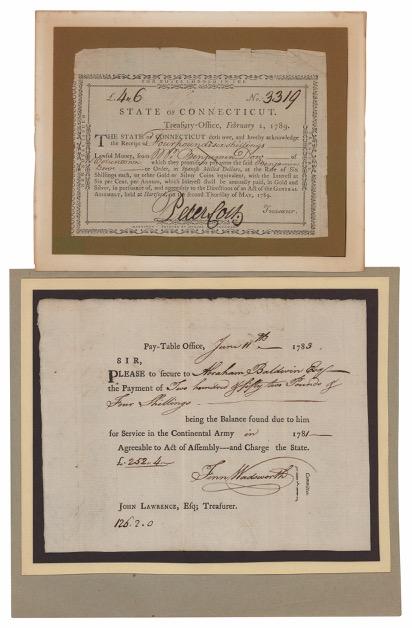 FOR NOTES LODGED IN THE
£ 4 „ 6 No. 3319
STATE OF CONNECTICUT.
Treasury-Office, February 1, 1789.
THE STATE of CONNECTICUT doth owe, and hereby acknowledge
the Receipt of Four pounds six shillings
Lawful Money, from Mr. Benjamin Dow of
which they promise to pay unto the said Benjamin
Dow or Order, in Spanish Milled Dollars, at the Rate of Six
Shillings each, or other Gold or Silver Coins equivalent, with the Interest at
Six per Cent. per Annum, which Interest shall be annually paid, in Gold and
Silver, in pursuance of, and agreeable to the Directions of an Act of the GENERAL
ASSEMBLY, held at Hartford, on the second Thursday of May, 1789.
Treasurer.
Pay-Table Office, June 11th 1783.
SIR,
PLEASE to secure to Abraham Baldwin Esqr
the Payment of Two hundred & fifty two Pounds &
Four Shillings
being the Balance found due to him
for Service in the Continental Army in 1781
Agreeable to Act of Assembly—and Charge the State.
£ 252..4
Fenn Wadsworth
JOHN LAWRENCE, Esq; Treasurer.
126.2.0